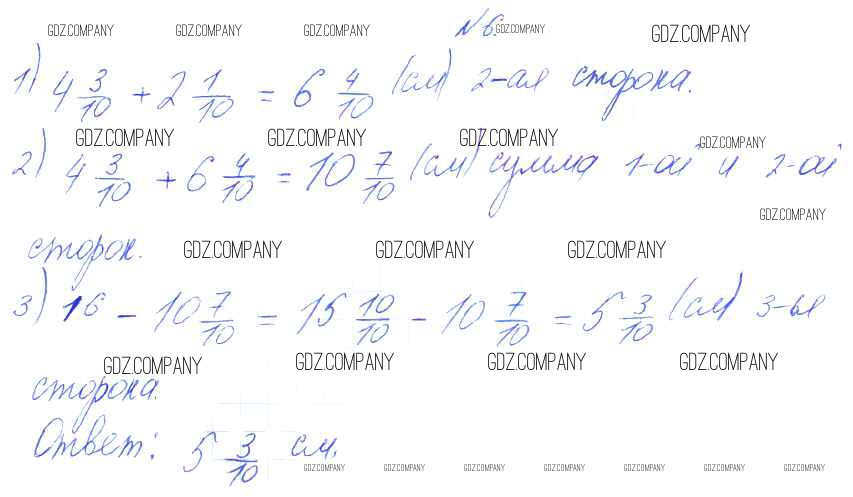 GDZ.COMPANY GDZ.COMPANY GDZ.COMPANY №6. GDZ.COMPANY GDZ.COMPANY
1) 4 3/10 + 2 1/10 = 6 4/10 (см) 2-ая сторона.
GDZ.COMPANY GDZ.COMPANY GDZ.COMPANY GDZ.COMPANY
2) 4 3/10 + 6 4/10 = 10 7/10 (см) сумма 1-ой и 2-ой
GDZ.COMPANY
сторон. GDZ.COMPANY GDZ.COMPANY GDZ.COMPANY
3) 16 - 10 7/10 = 15 10/10 - 10 7/10 = 5 3/10 (см) 3-ья
GDZ.COMPANY GDZ.COMPANY GDZ.COMPANY GDZ.COMPANY
сторона.
Ответ: 5 3/10 см.
GDZ.COMPANY GDZ.COMPANY GDZ.COMPANY GDZ.COMPANY GDZ.COMPANY GDZ.COMPANY GDZ.COMPANY